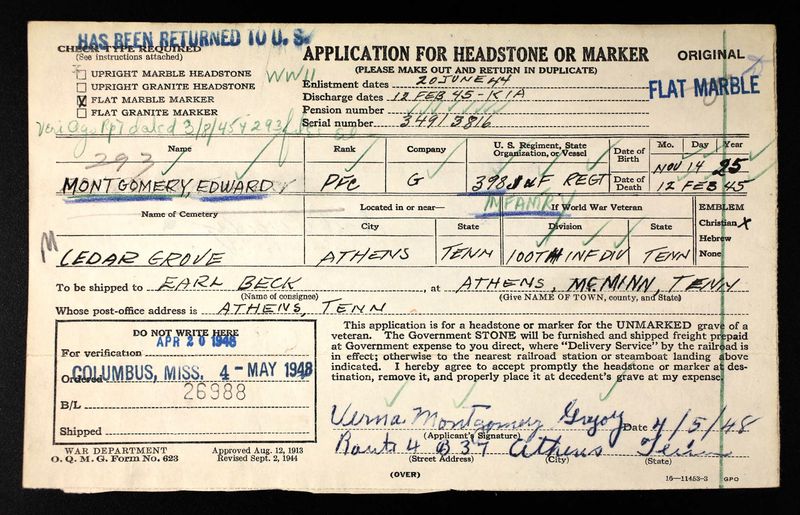 HAS BEEN RETURNED TO U. S.
CHECK TYPE REQUIRED
(See instructions attached)
UPRIGHT MARBLE HEADSTONE
UPRIGHT GRANITE HEADSTONE
X FLAT MARBLE MARKER
FLAT GRANITE MARKER
WWII
APPLICATION FOR HEADSTONE OR MARKER
(PLEASE MAKE OUT AND RETURN IN DUPLICATE)
ORIGINAL
FLAT MARBLE
Enlistment dates 20 JUNE 44
Discharge dates 12 FEB 45 - KIA
Pension number
Serial number 34913816
dated 3/8/45 + 293
293
Name Rank Company U. S. Regiment, State Organization, or Vessel Date of Birth Mo. Day Year
NOV 14 25
MONTGOMERY, EDWARD PFC G 398 INF REGT Date of Death 12 FEB 45
INFANTRY
Name of Cemetery Located in or near— If World War Veteran EMBLEM
City State Division State Christian X
Hebrew
None
M
CEDAR GROVE ATHENS TENN 100TH INF DIV TENN
To be shipped to EARL BECK at ATHENS, MCMINN, TENN
(Name of consignee) (Give NAME OF TOWN, county, and State)
Whose post-office address is ATHENS, TENN
DO NOT WRITE HERE
APR 20 1948
For verification
Ordered COLUMBUS, MISS. 4 - MAY 1948
26988
B/L
Shipped
This application is for a headstone or marker for the UNMARKED grave of a
veteran. The Government STONE will be furnished and shipped freight prepaid
at Government expense to you direct, where "Delivery Service" by the railroad is
in effect; otherwise to the nearest railroad station or steamboat landing above
indicated. I hereby agree to accept promptly the headstone or marker at des-
tination, remove it, and properly place it at decedent's grave at my expense.
Verna Montgomery Gregory Date 4/5/48
(Applicant's Signature)
Route 4 B 37 Athens Tenn
(Street Address) (City) (State)
WAR DEPARTMENT
O. Q. M. G. Form No. 623
Approved Aug. 12, 1913
Revised Sept. 2, 1944
(OVER)
16—11453-3 GPO